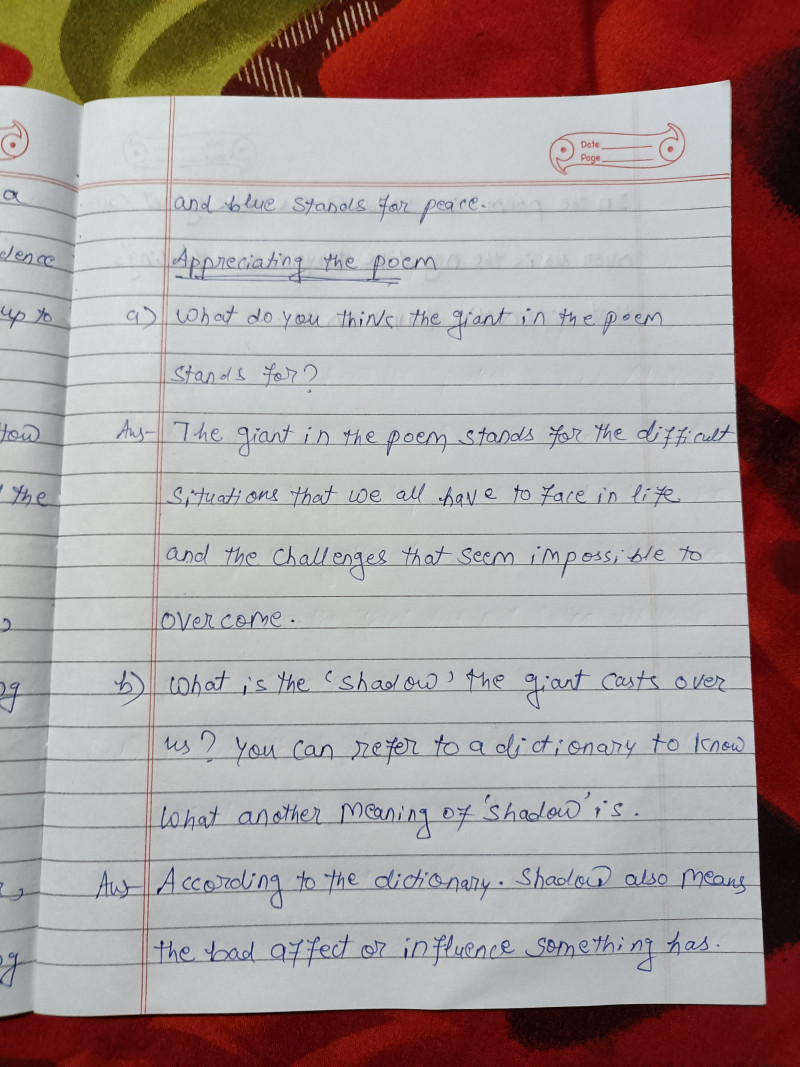 Date
Page
a
dence
up to
the
and blue stands for peace.
Appreciating the poem
a) What do you think the giant in the poem
stands for?
Ans- The giant in the poem stands for the difficult
situations that we all have to face in life
and the challenges that seem impossible to
overcome.
b) What is the 'shadow' the giant casts over
us? You can refer to a dictionary to know
What another meaning of 'shadow' is.
Ans According to the dictionary. Shadow also means
the bad affect or influence something has.